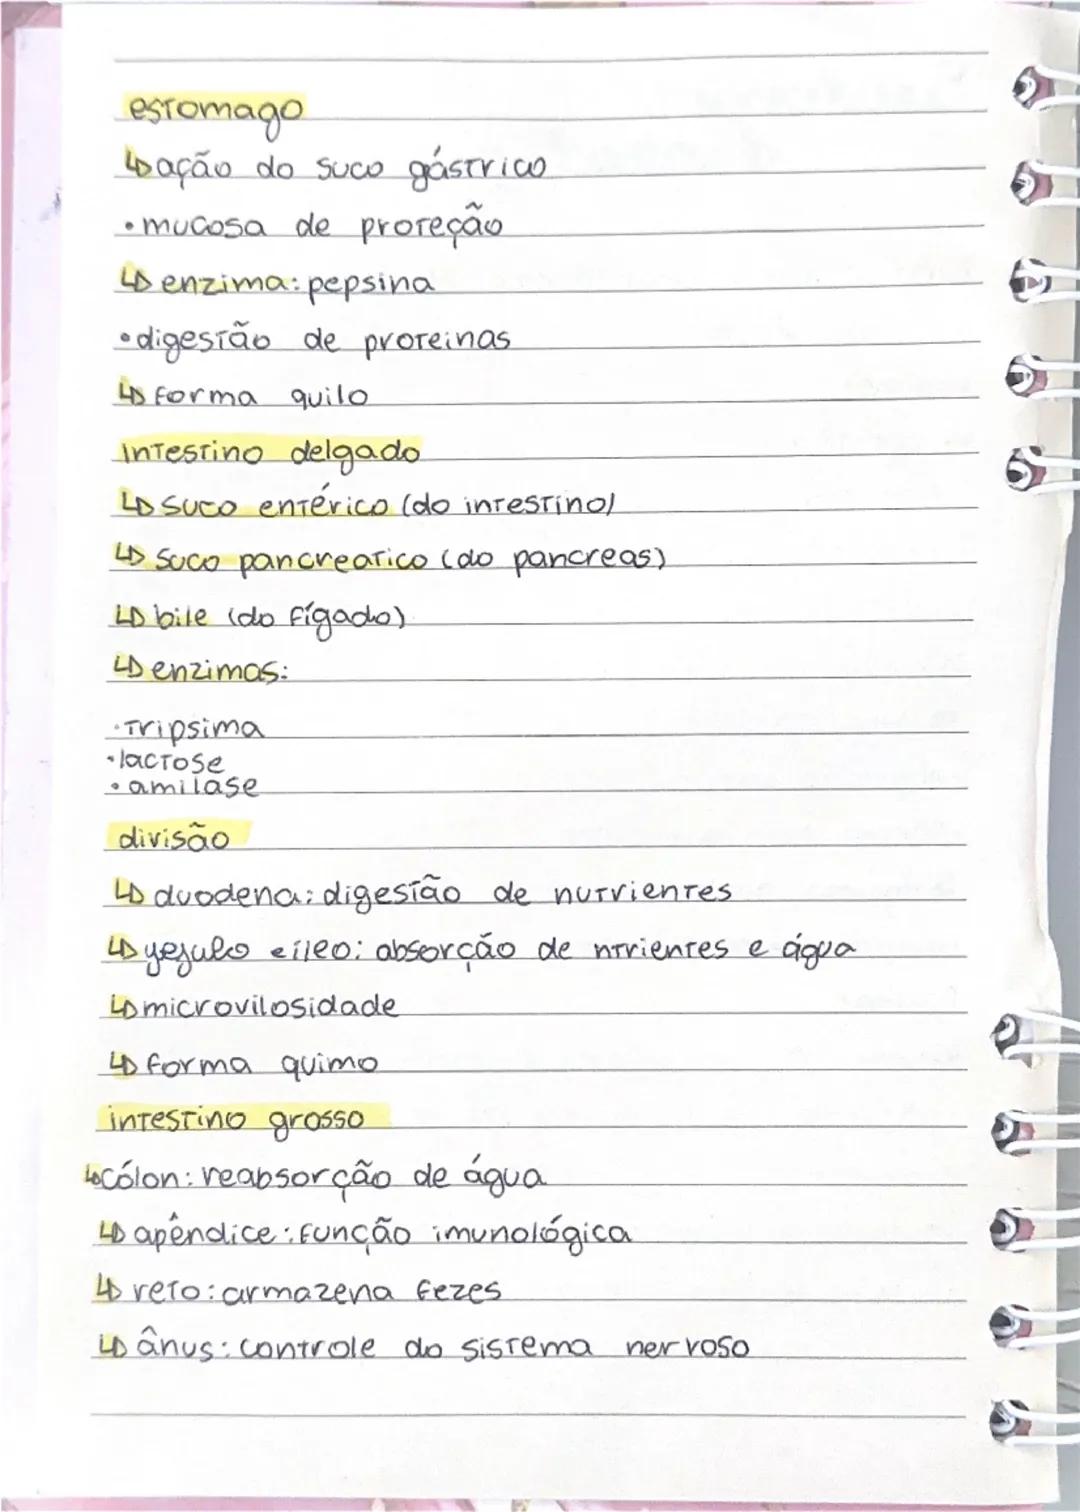 estomago
↳ação do suco gástrico
•mucosa de proteção
↳enzima: pepsina
•digestão de proteinas
↳forma quilo
Intestino delgado
↳suco entérico (do intestino)
↳suco pancreatico (do pancreas)
↳bile (do fígado)
↳enzimas:
•Tripsima
•lactose
•amilase
divisão
↳duodena: digestão de nutrientes
↳yejulo e íleo: absorção de ntrientes e água
↳microvilosidade
↳forma quimo
intestino grosso
↳cólon: reabsorção de água
↳apêndice: função imunológica
↳reto: armazena fezes
↳ânus: controle do sistema nervoso